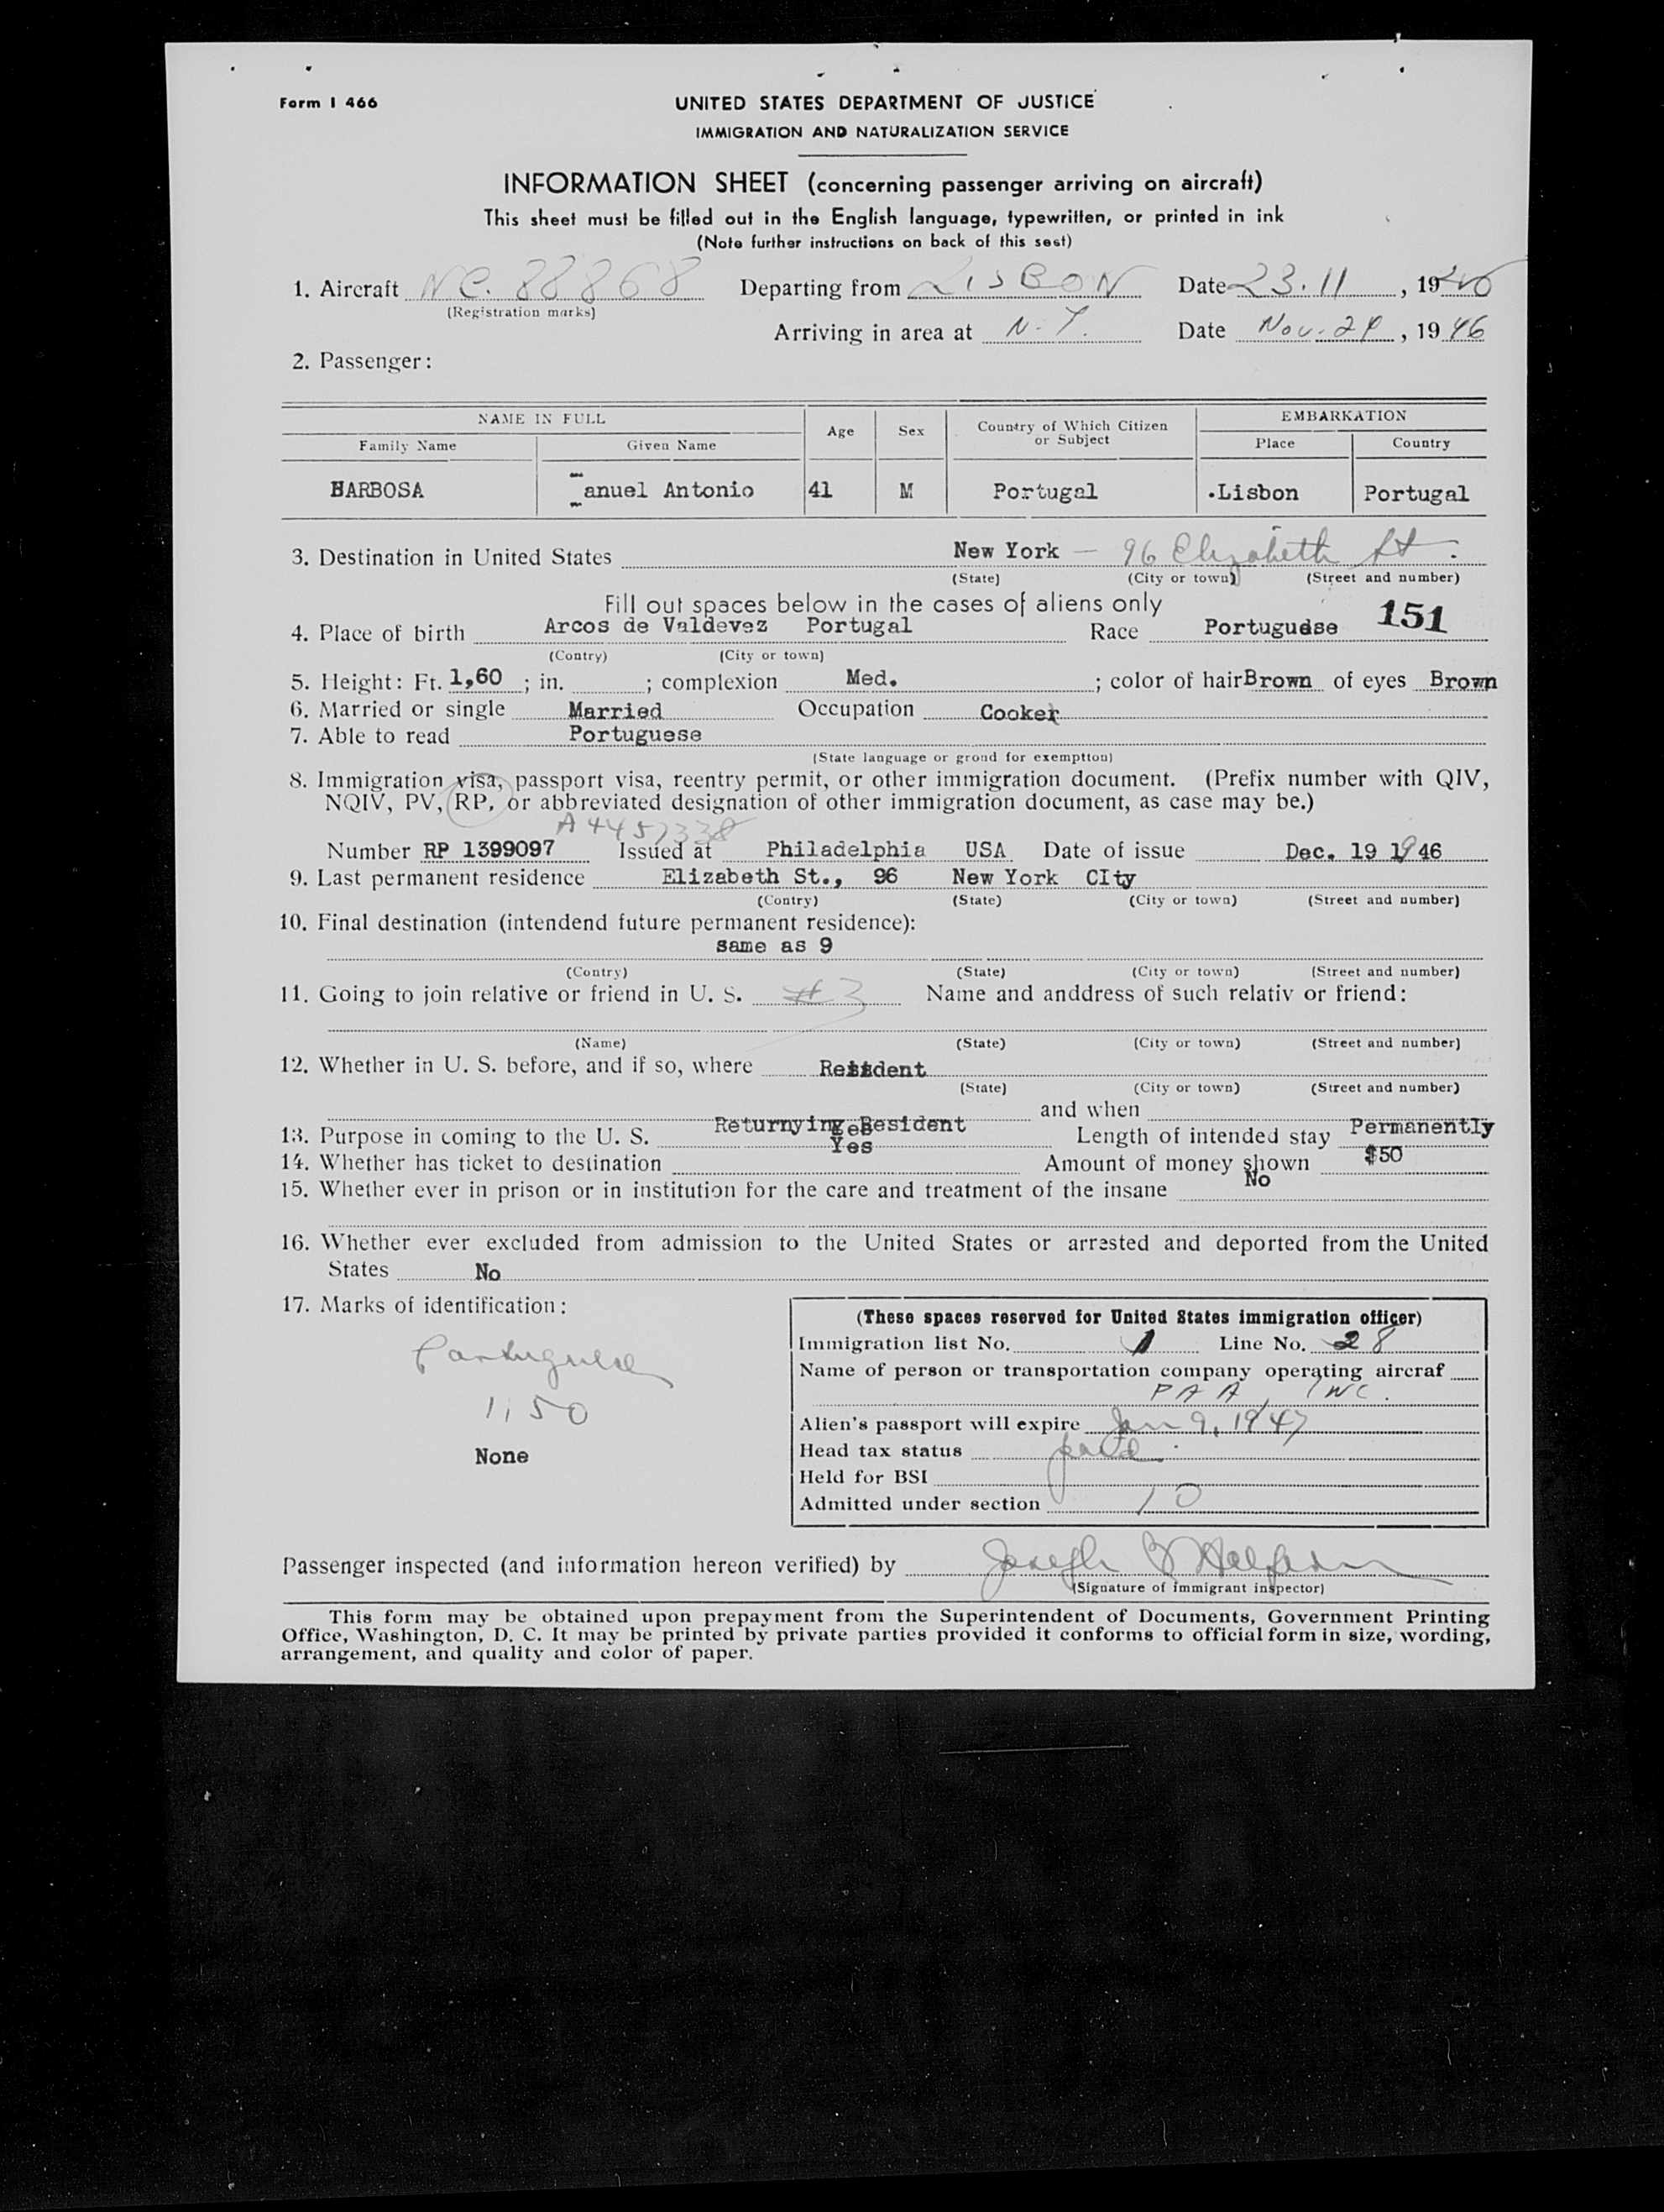 Form I 466
UNITED STATES DEPARTMENT OF JUSTICE
IMMIGRATION AND NATURALIZATION SERVICE
INFORMATION SHEET (concerning passenger arriving on aircraft)
This sheet must be filled out in the English language, typewritten, or printed in ink
(Note further instructions on back of this seet)
1. Aircraft NC. 88868 Departing from LISBON Date 23.11, 1946
(Registration marks)
Arriving in area at N.Y. Date Nov. 24, 1946
2. Passenger:
NAME IN FULL Age Sex Country of Which Citizen or Subject EMBARKATION
Family Name Given Name Place Country
BARBOSA anuel Antonio 41 M Portugal .Lisbon Portugal
3. Destination in United States New York — 96 Elizabeth St.
(State) (City or town) (Street and number)
Fill out spaces below in the cases of aliens only 151
4. Place of birth Arcos de Valdevez Portugal Race Portuguese
(Contry) (City or town)
5. Height: Ft. 1,60 ; in. ; complexion Med. ; color of hair Brown of eyes Brown
6. Married or single Married Occupation Cooker
7. Able to read Portuguese
(State language or grond for exemption)
8. Immigration visa, passport visa, reentry permit, or other immigration document. (Prefix number with QIV,
NQIV, PV, RP, or abbreviated designation of other immigration document, as case may be.)
A4457338
Number RP 1399097 Issued at Philadelphia USA Date of issue Dec. 19 1946
9. Last permanent residence Elizabeth St., 96 New York CIty
(Contry) (State) (City or town) (Street and number)
10. Final destination (intendend future permanent residence):
same as 9
(Contry) (State) (City or town) (Street and number)
11. Going to join relative or friend in U. S. #3 Name and anddress of such relativ or friend:
(Name) (State) (City or town) (Street and number)
12. Whether in U. S. before, and if so, where Resident
(State) (City or town) (Street and number)
and when
13. Purpose in coming to the U. S. Returnying Resident Length of intended stay Permanently
14. Whether has ticket to destination Yes Amount of money shown $50
15. Whether ever in prison or in institution for the care and treatment of the insane No
16. Whether ever excluded from admission to the United States or arrested and deported from the United
States No
17. Marks of identification:
Portuguese
1,50
None
(These spaces reserved for United States immigration officer)
Immigration list No. 1 Line No. 28
Name of person or transportation company operating aircraf
PAA, INC.
Alien's passport will expire Jan 9, 1947
Head tax status paid
Held for BSI
Admitted under section 10
Passenger inspected (and information hereon verified) by Joseph
(Signature of immigrant inspector)
This form may be obtained upon prepayment from the Superintendent of Documents, Government Printing
Office, Washington, D. C. It may be printed by private parties provided it conforms to official form in size, wording,
arrangement, and quality and color of paper.